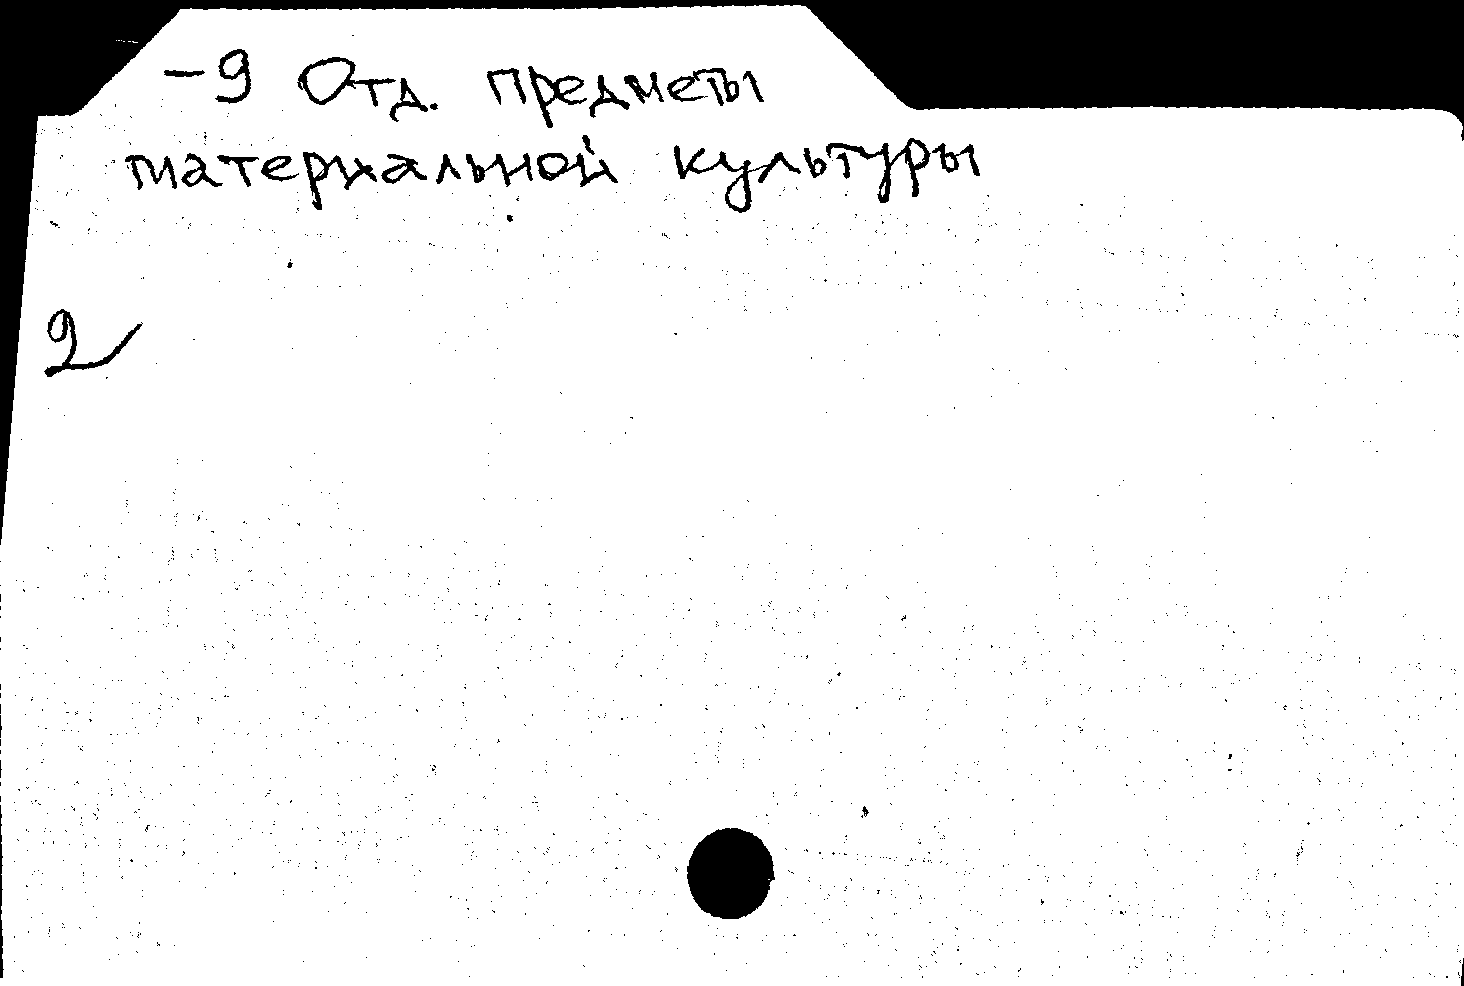 -9 Отд. предметы
материальной культуры
2